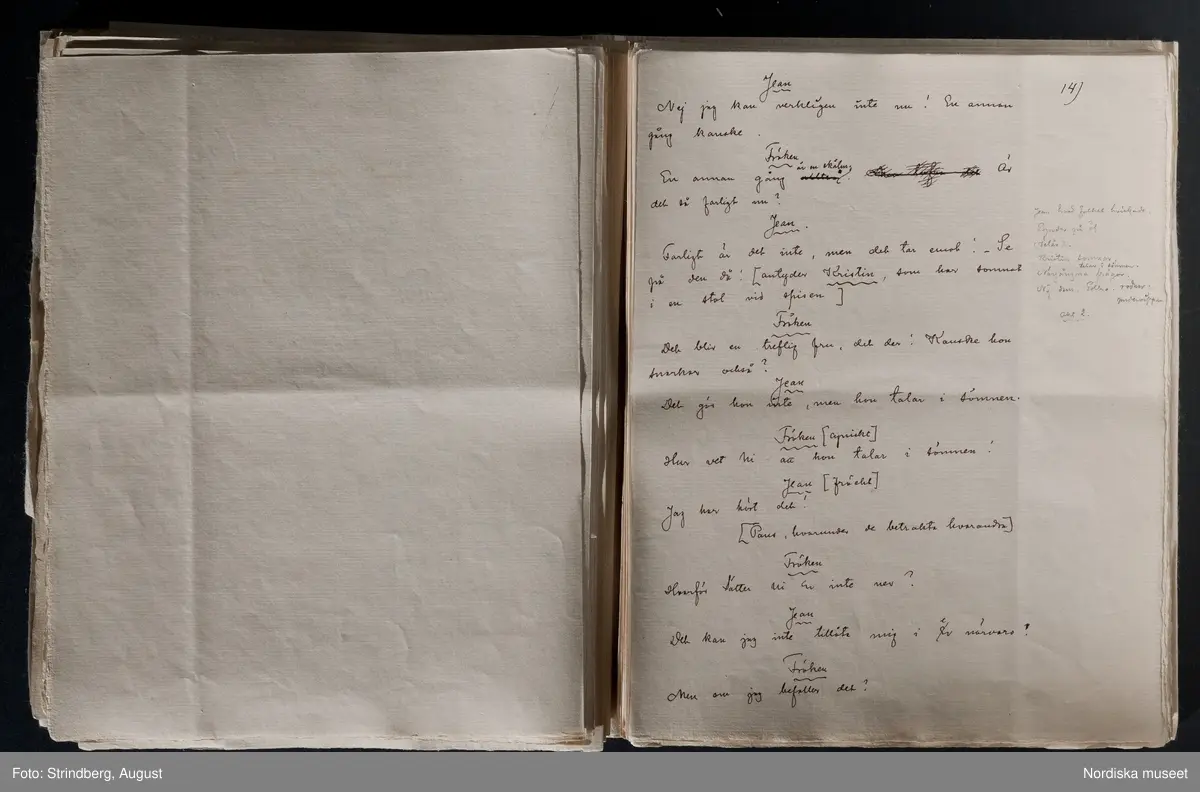 14)
Jean
Nej jag kan verkligen inte nu! En annan
gång kanske.
Fröken
är en skälm
En annan gång . Är
det så farligt nu?
Jean.
Farligt är det inte, men det tar emot! - Se
på den då! [antyder Kristin, som har somnat
i en stol vid spisen]
Fröken
Det blir en treflig fru, det der! Kanske hon
snarkar också?
Jean
Det gör hon inte, men hon talar i sömnen.
Fröken [cyniskt]
Hur vet Ni att hon talar i sömnen!
Jean [fräckt]
Jag har hört det!
[Paus, hvarunder de betrakta hvarandra]
Fröken
Hvarför sätter Ni Er inte ner?
Jean
Det kan jag inte tillåta mig i Er närvaro!
Fröken
Men om jag befaller det?
Kristin somnar
talar i sömnen.
Foto: Strindberg, August
Nordiska museet